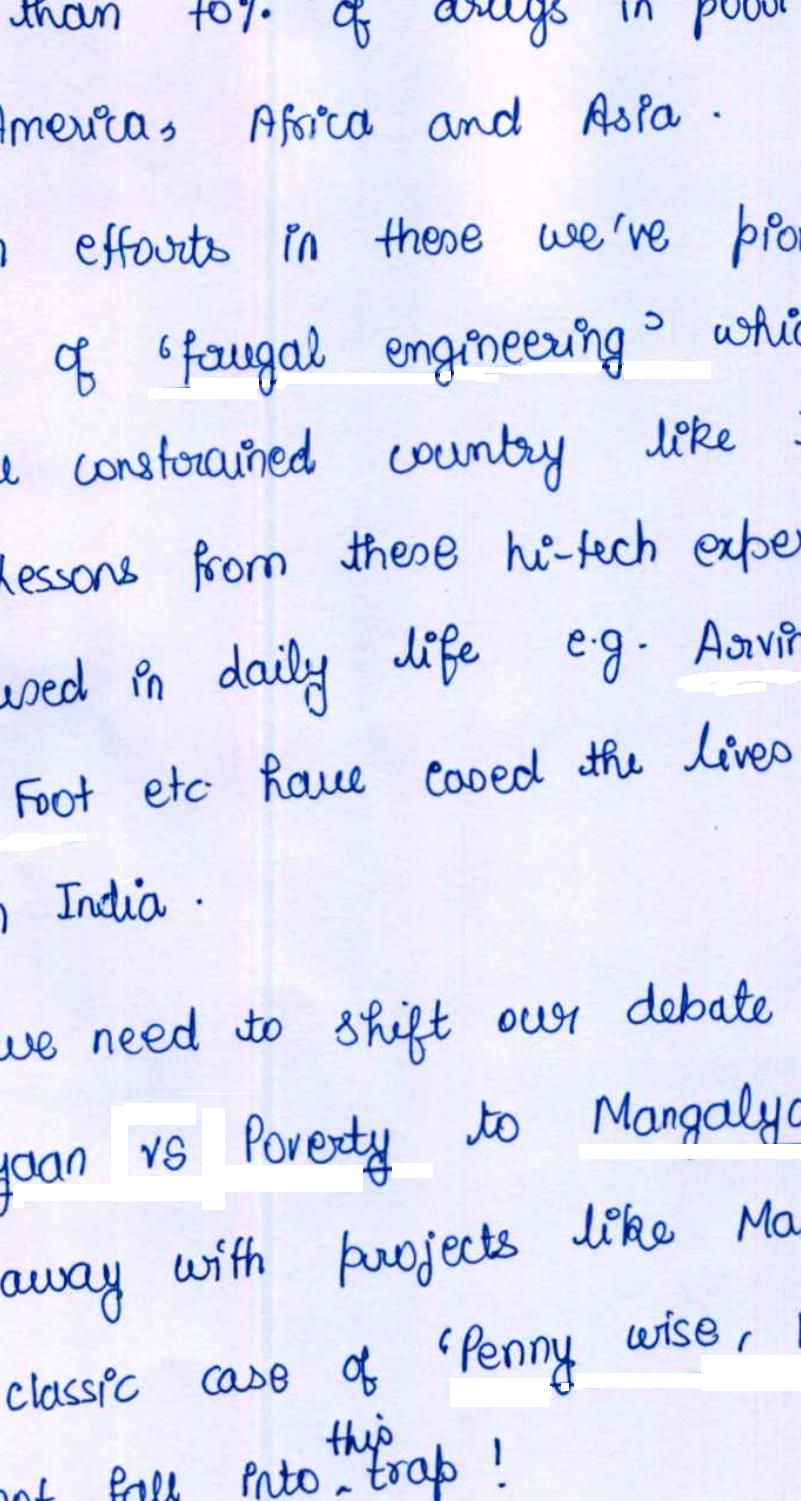 than 70% of drugs in poor
America, Africa and Asia.
efforts in these we've
of 'frugal engineering'
constrained country like
Lessons from these hi-tech
used in daily life e.g.
Foot etc have eased the lives
India.
we need to shift our debate
yaan vs Poverty to Mangalya
away with projects like Ma
classic case of 'Penny wise,
fall into this trap!